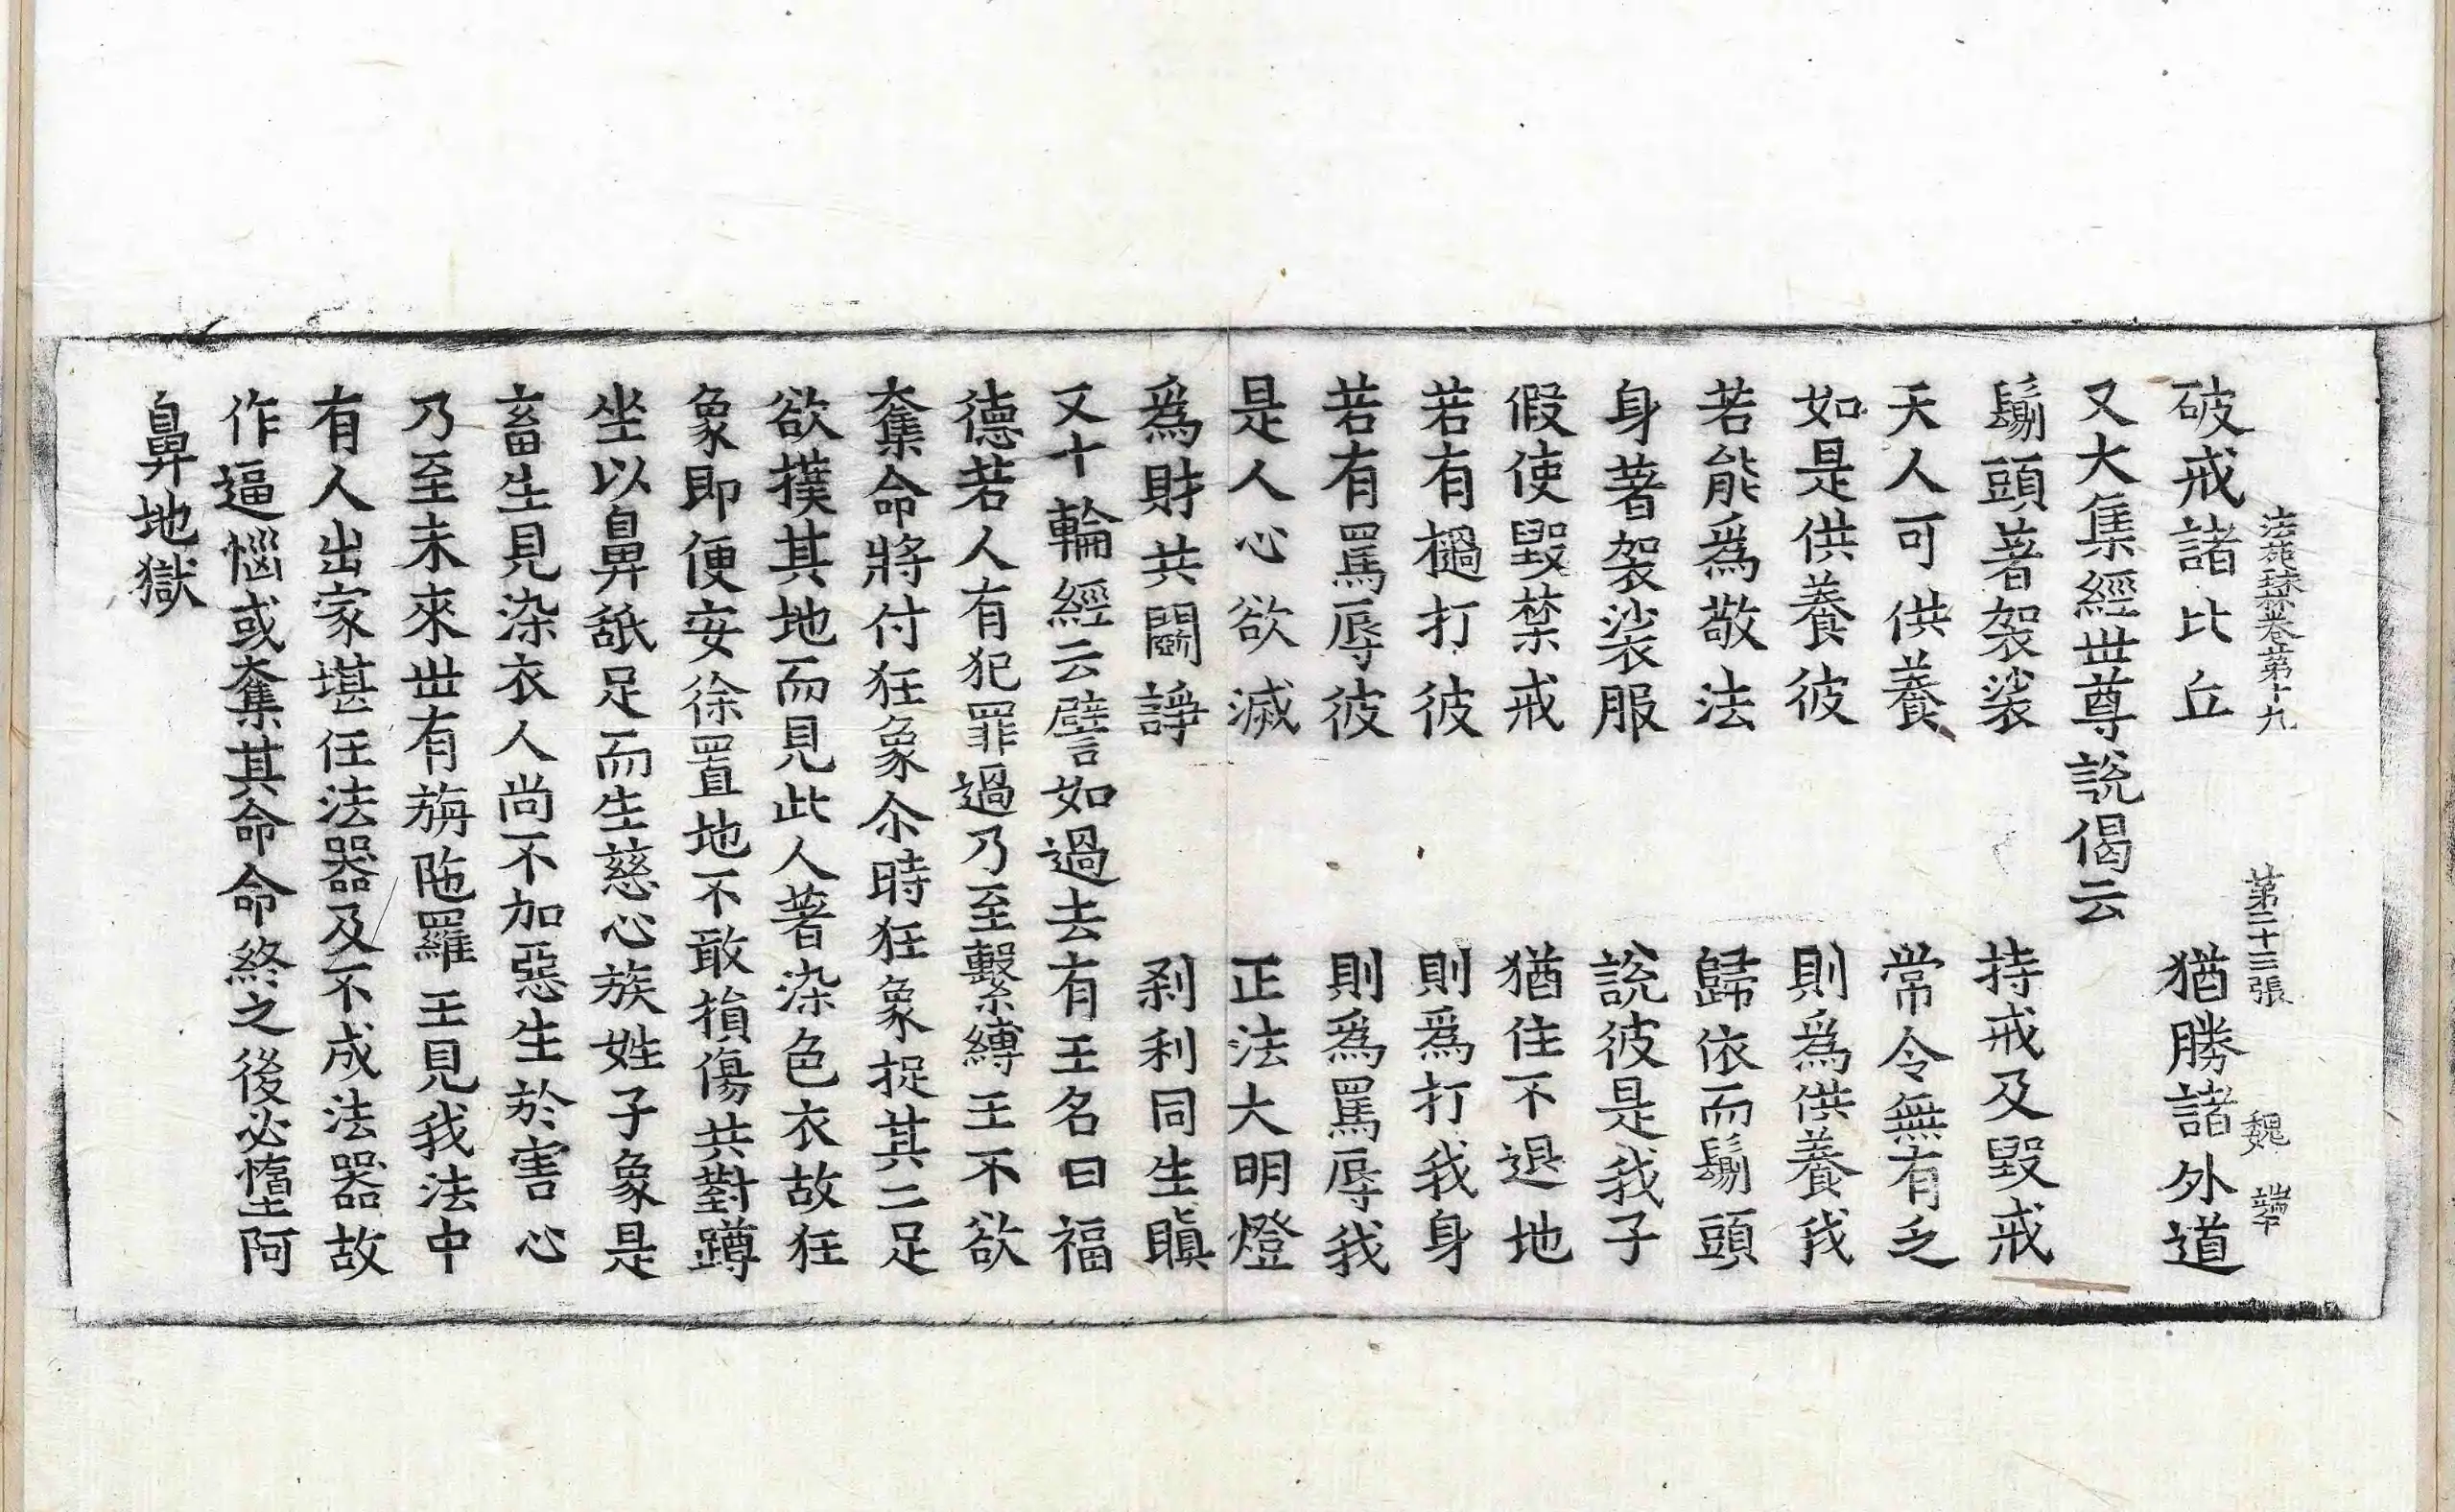 法苑珠林卷第十九　第二十三張　魏　端
破戒諸比丘　猶勝諸外道
又大集經世尊說偈云
鬀頭著袈裟　持戒及毀戒
天人可供養　常令無有乏
如是供養彼　則爲供養我
若能爲敬法　歸依而鬀頭
身著袈裟服　說彼是我子
假使毀禁戒　猶住不退地
若有檛打彼　則爲打我身
若有罵辱彼　則爲罵辱我
是人心欲滅　正法大明燈
爲財共鬪諍　刹利同生瞋
又十輪經云譬如過去有王名曰福
德若人有犯罪過乃至繫縛王不欲
奪命將付狂象尒時狂象捉其二足
欲撲其地而見此人著染色衣故狂
象即便安徐置地不敢損傷共對蹲
坐以鼻舐足而生慈心族姓子象是
畜生見染衣人尚不加惡生於害心
乃至未來世有旃陁羅王見我法中
有人出家堪任法器及不成法器故
作逼惱或奪其命命終之後必墮阿
鼻地獄